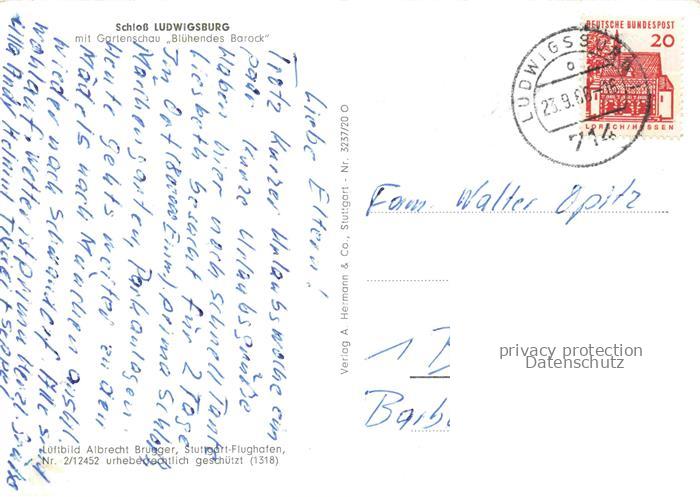 Schloß LUDWIGSBURG
mit Gartenschau „Blühendes Barock"
Liebe Eltern!
Trotz kurzer Urlaubswoche ein
paar kurze Urlaubsgrüße
Haben hier noch schnell Tante
Liesbeth besucht für 2 Tage
In Ort prima Schloß
Märchengarten, Parkanlagen.
Heut gehts weiter zu den
Mädels nach München anschl.
wieder nach Schwandorf Alle sind
wohlauf. Wetter ist prima Herzl. Grüße
Luftbild Albrecht Brugger, Stuttgart-Flughafen,
Nr. 2/12452 urheberrechtlich geschützt (1318)
Verlag A. Hermann & Co., Stuttgart - Nr. 3237/20 O
DEUTSCHE BUNDESPOST
20
LORSCH/HESSEN
LUDWIGSBURG
23.9.66-16
714
Fam. Walter Opitz
1
Barb
privacy protection
Datenschutz